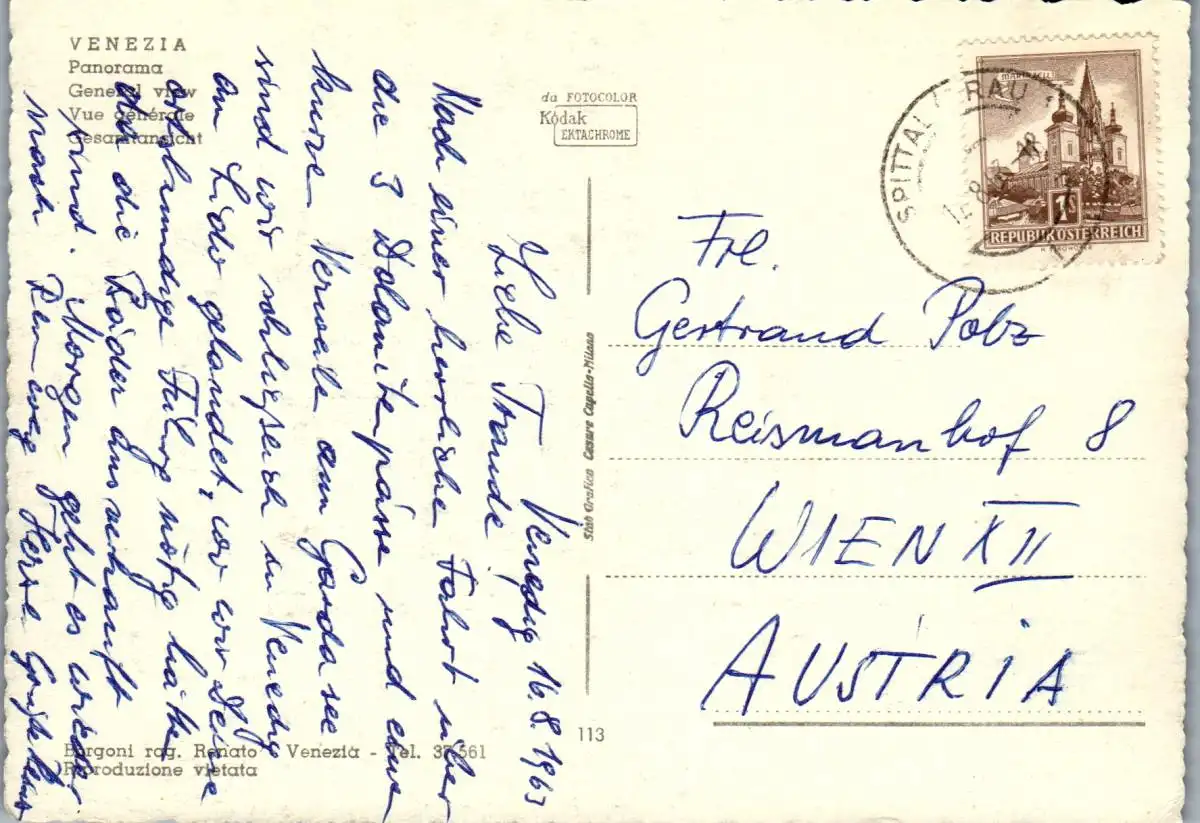 VENEZIA
Panorama
General view
Vue générale
Gesamtansicht
da FOTOCOLOR
Kodak
EKTACHROME
SPITTAL DRAU
REPUBLIK ÖSTERREICH
1
Venedig 16.8.1963
Liebe Traude!
Nach einer herrlichen Fahrt über
die 3 Dolomitenpässe und einer
kurzen Verweile am Gardasee
sind wir schließlich in Venedig
am Lido gelandet, wo wir Deine
kundige Führung nötig hätten
da die Bäder ausverkauft
sind. Morgen geht es wieder
nach
Herzl.
Frl.
Gertraud Polz
Reismanhof 8
WIEN XII
AUSTRIA
Stab Grafico Cesare Capello-Milano
113
Borgoni rag. Renato - Venezia - Tel. 37.561
Riproduzione vietata